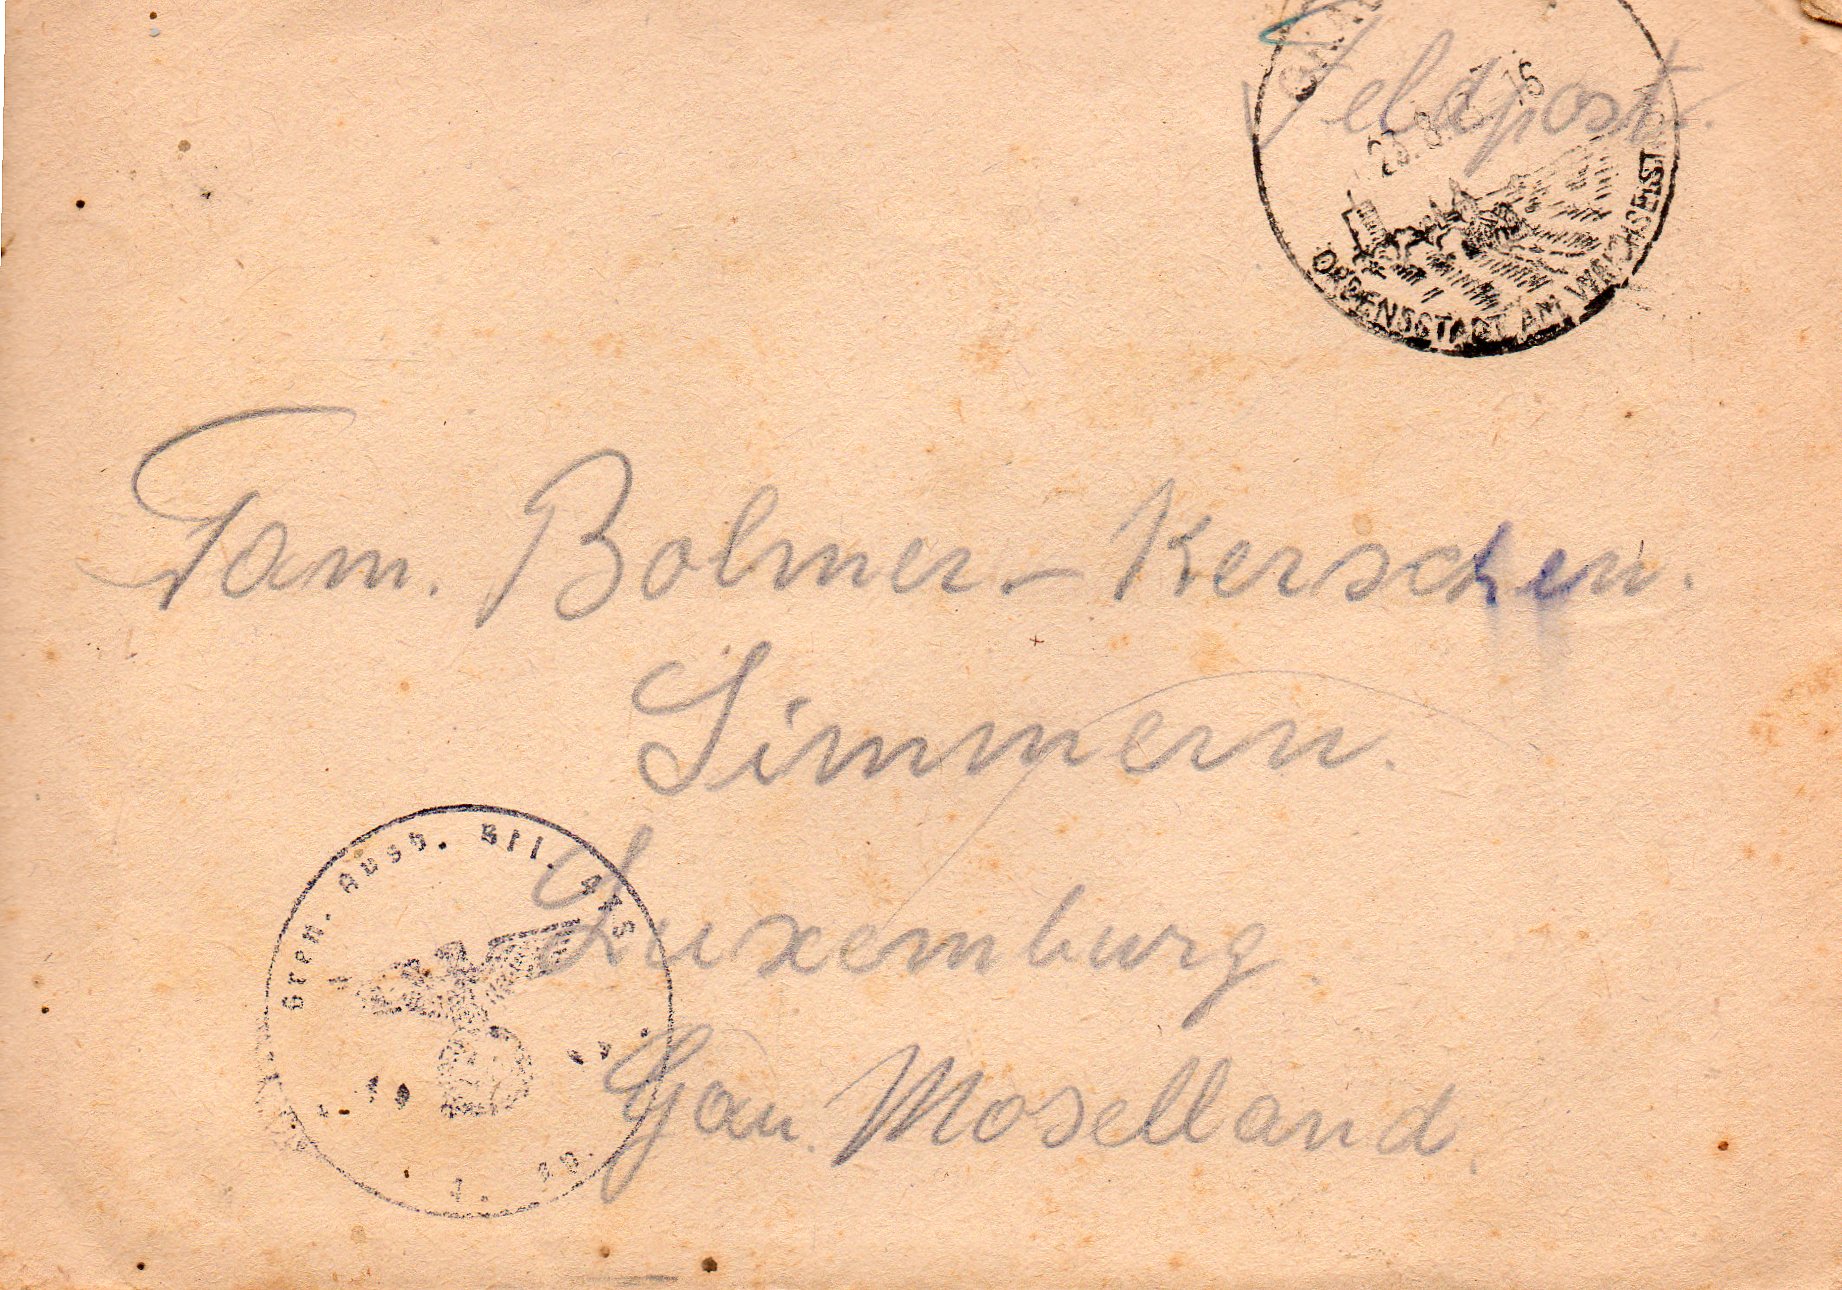 Feldpost.
ORDENSSTADT AM WEICHSELSTR
Fam. Bolmer.-Kerschen.
Simmern.
Luxemburg.
Gau. Moselland.
Gren. Ausb. Btl.